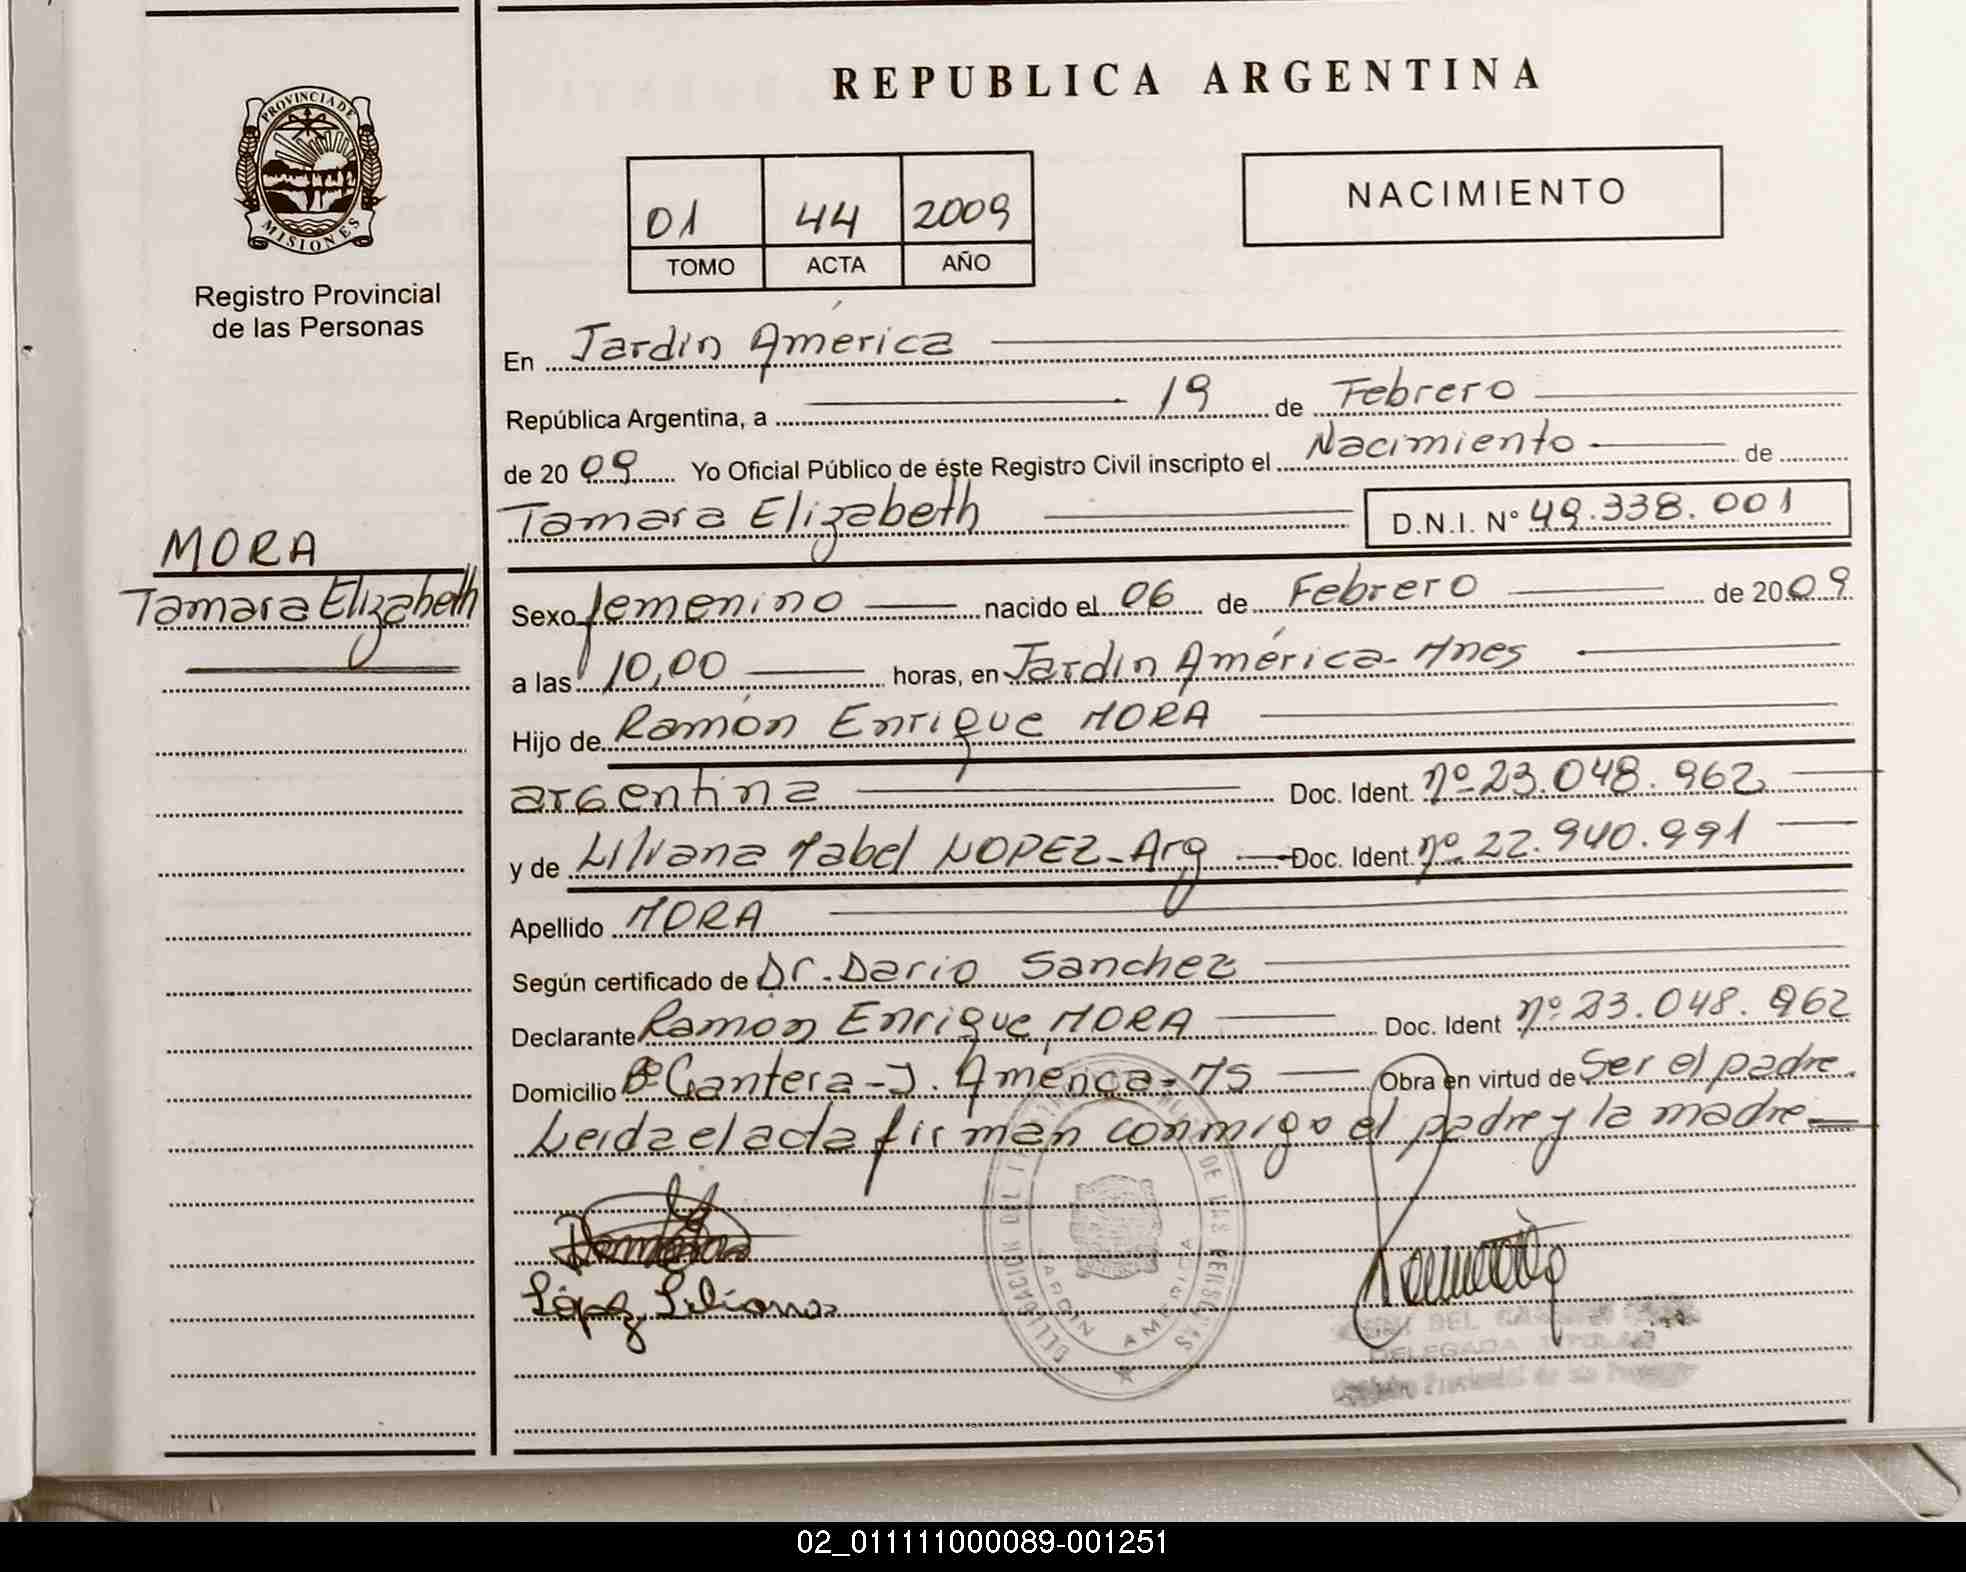 REPUBLICA ARGENTINA
PROVINCIA DE
MISIONES
Registro Provincial
de las Personas
01 44 2009
TOMO ACTA AÑO
NACIMIENTO
En Jardín América
República Argentina, a 19 de Febrero
de 2009 Yo Oficial Público de éste Registro Civil inscripto el Nacimiento de
Tamara Elizabeth D.N.I. N° 49.338.001
MORA
Tamara Elizabeth
Sexo femenino nacido el 06 de Febrero de 2009
a las 10,00 horas, en Jardín América- Mnes
Hijo de Ramón Enrique MORA
argentina Doc. Ident. nº 23.048.962
y de Liliana Mabel LOPEZ-Arg Doc. Ident. nº 22.940.991
Apellido MORA
Según certificado de Dr. Dario Sanchez
Declarante Ramon Enrique MORA Doc. Ident nº 23.048.962
Domicilio Bº Cantera-J. América-Ms Obra en virtud de Ser el padre.
Leida el acta firman conmigo el padre y la madre
López Liliana
DE LAS PERSONAS
JARDIN AMERICA
DELEGADA TITULAR
02_011111000089-001251